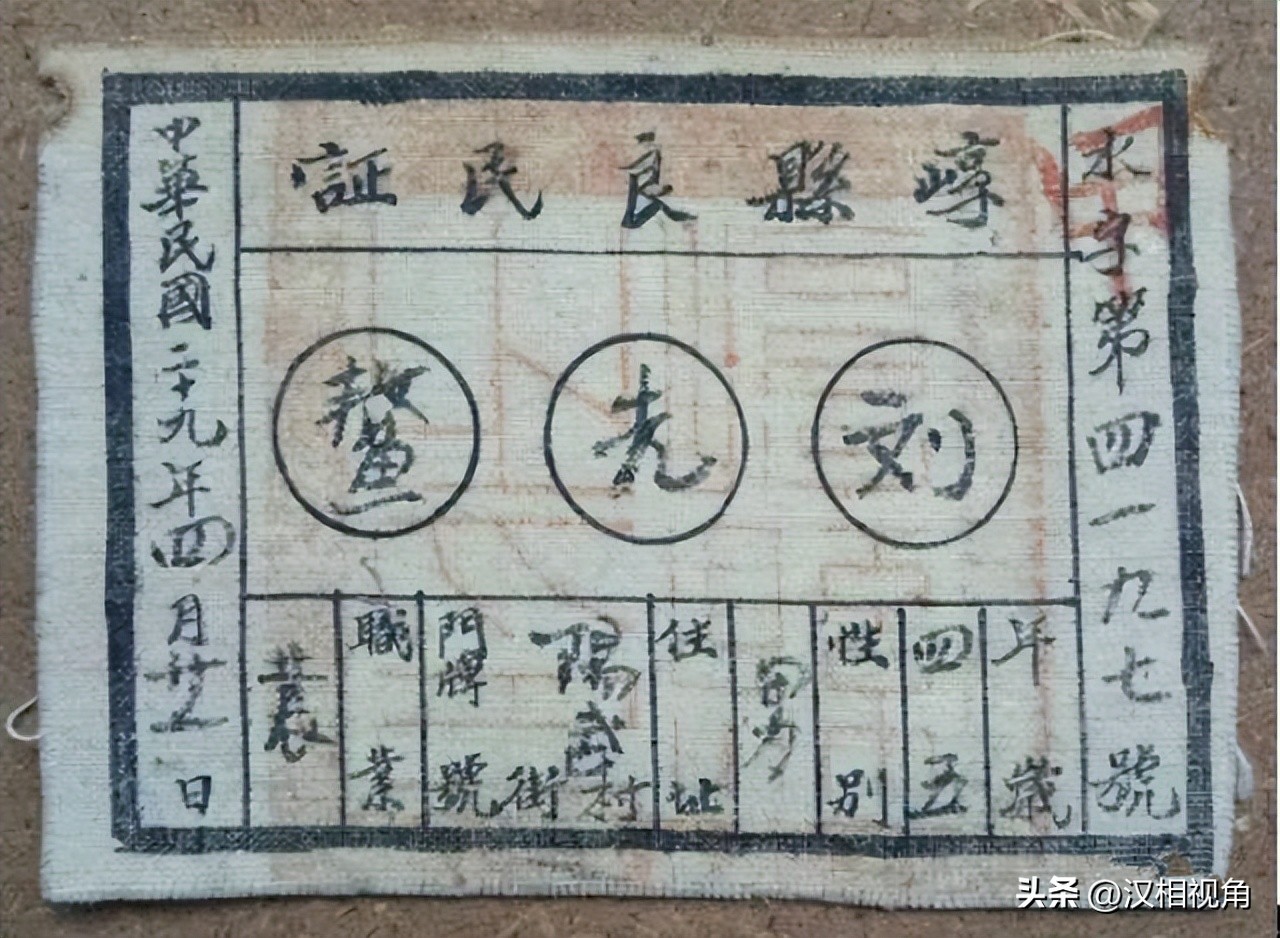 崞縣良民証
水字第四一九七號
刘先鳌
年歲
四五
性別
男
住址
陽武村
街
門牌號
職業
農
中華民國二十九年四月廿五日
头条 @汉相视角